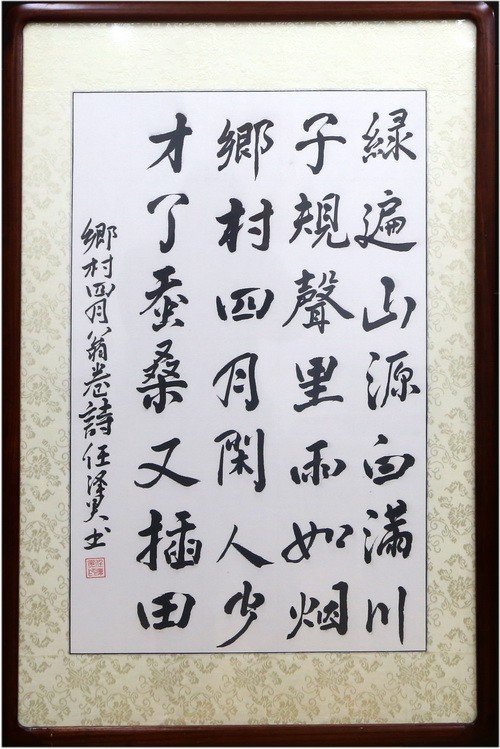 綠遍山源白满川
子規聲里雨如烟
鄉村四月閑人少
才了蚕桑又插田
鄉村四月翁卷詩任泽昊书